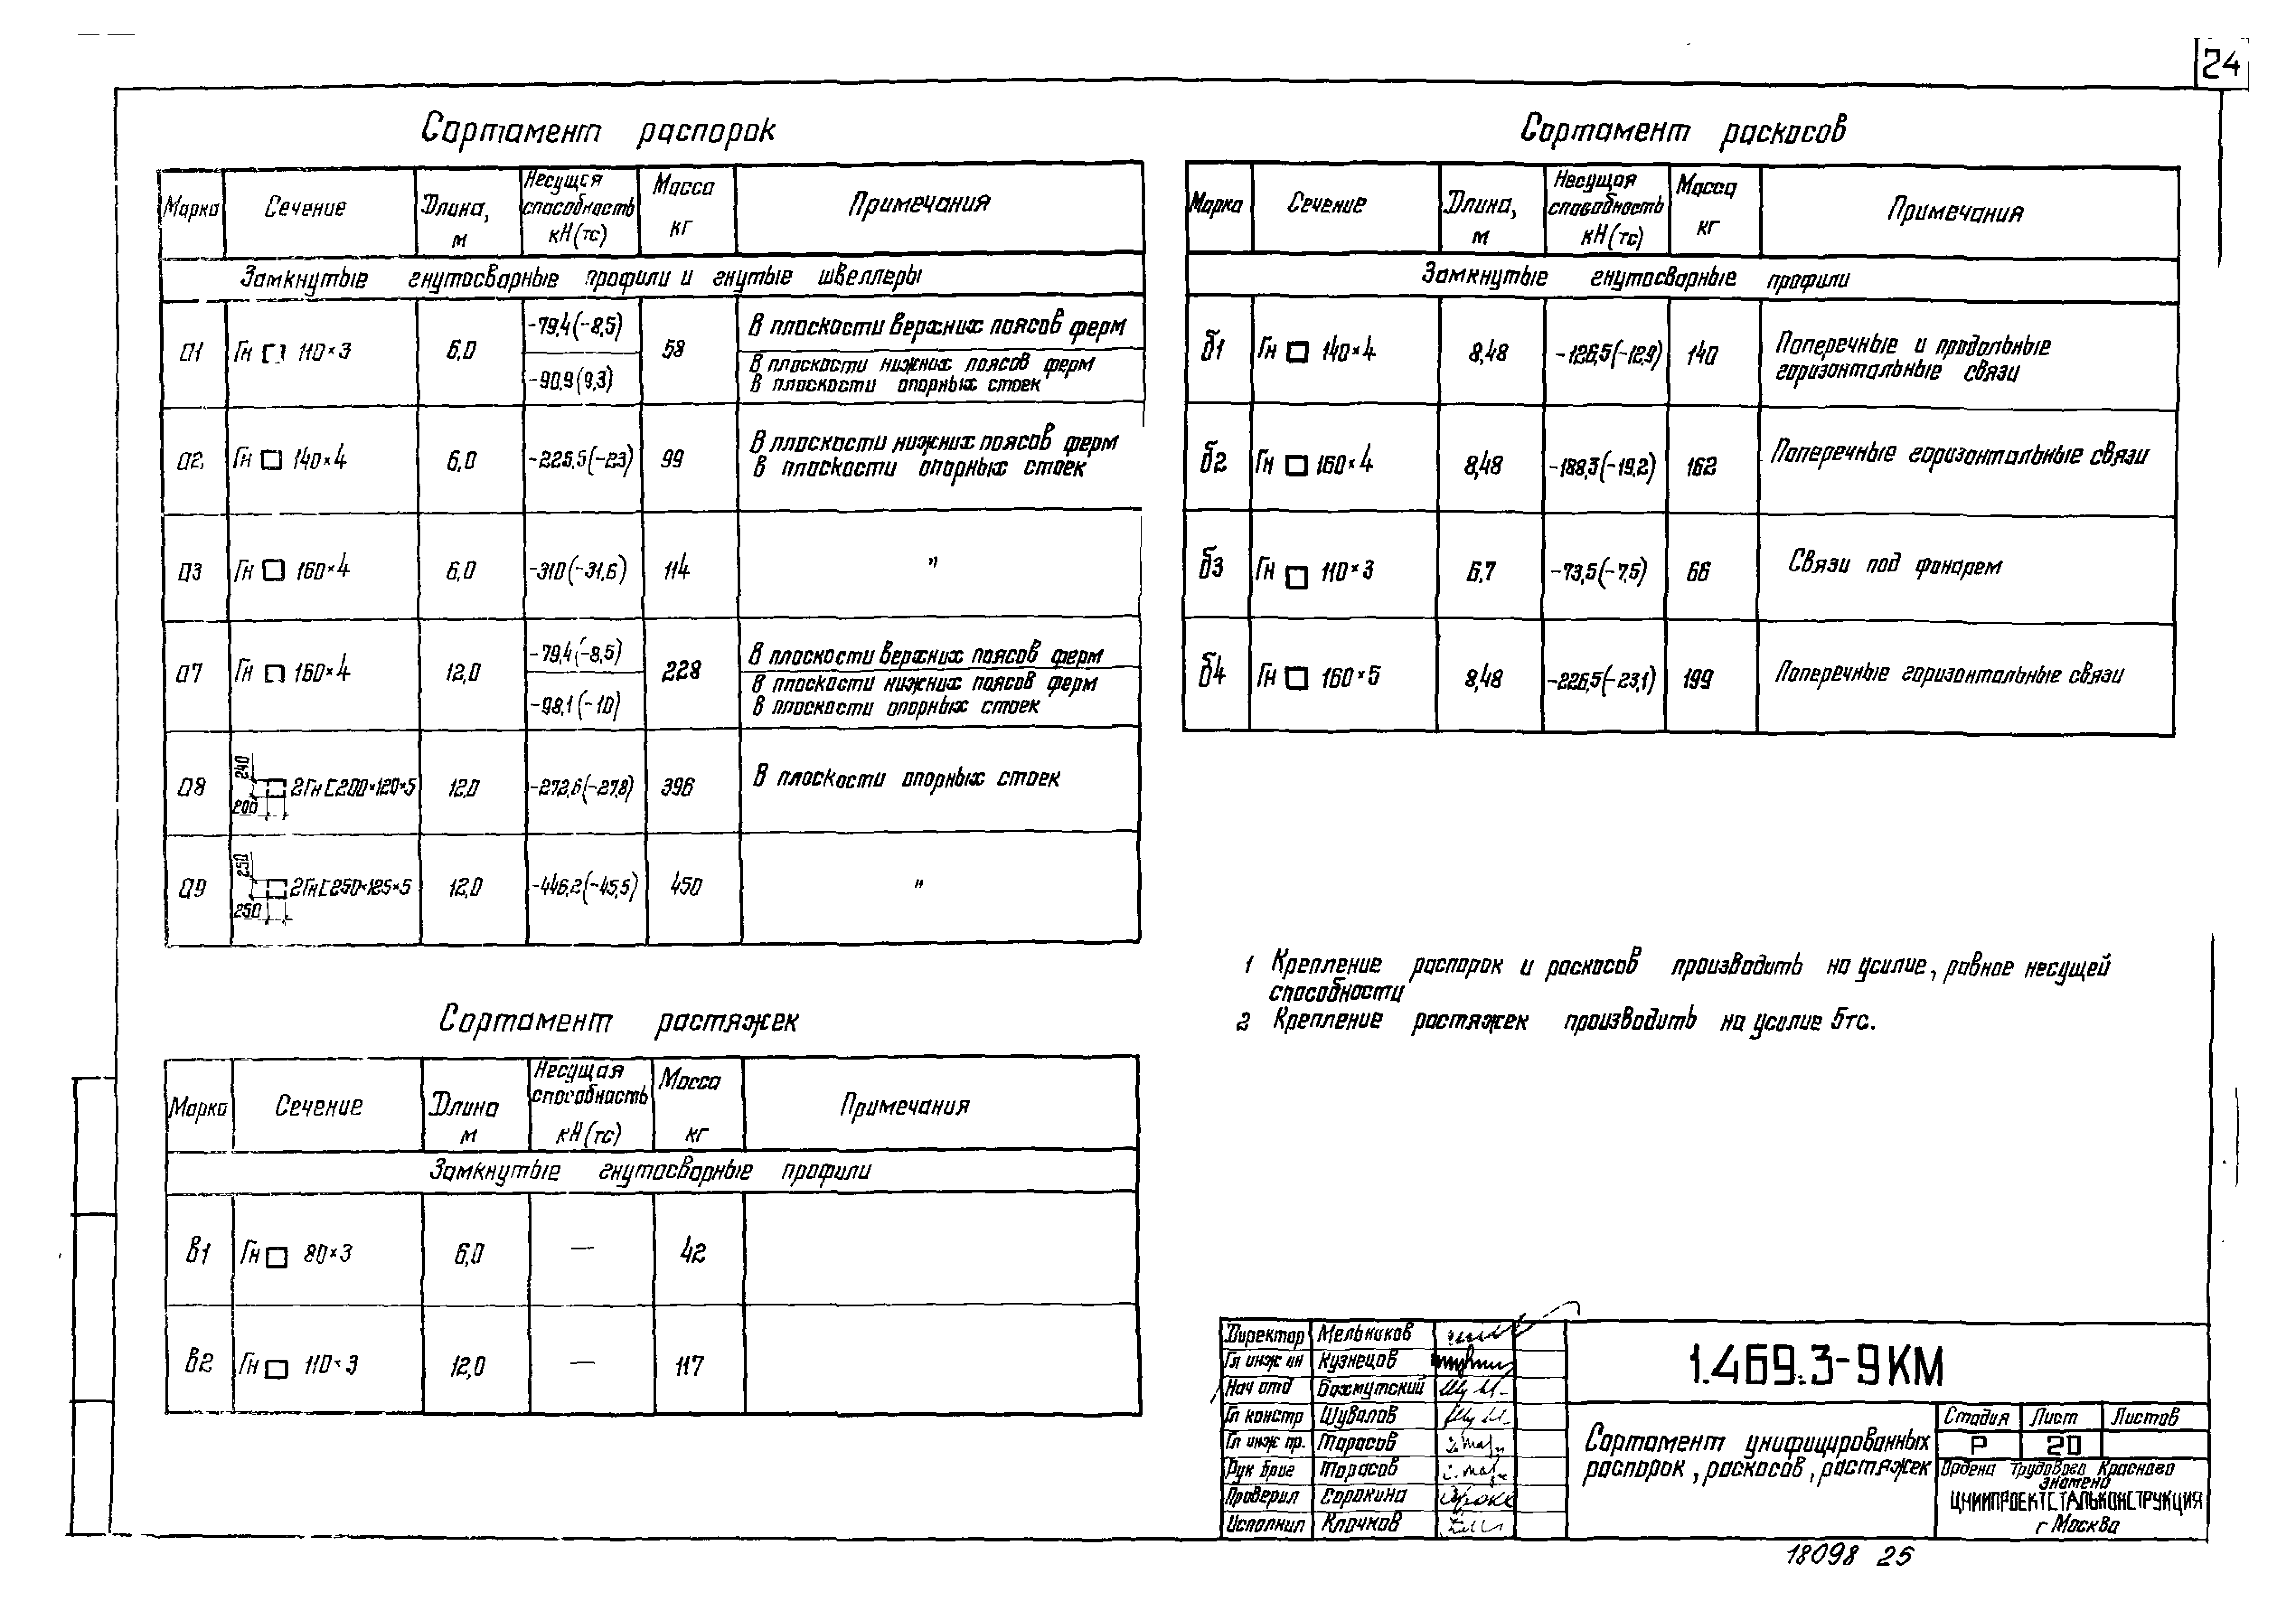 24
Сортамент распорок
Марка Сечение Длина, м Несущая способность кН(тс) Масса кг Примечания
Замкнутые гнутосварные профили и гнутые швеллеры
а1 Гн □ 110×3 6,0 -79,4(-8,5) 58 В плоскости верхних поясов ферм
-90,9(9,3) В плоскости нижних поясов ферм
В плоскости опорных стоек
а2, Гн □ 140×4 6,0 -225,5(-23) 99 В плоскости нижних поясов ферм
В плоскости опорных стоек
а3 Гн □ 160×4 6,0 -310(-31,6) 114 "
а7 Гн □ 160×4 12,0 -79,4(-8,5) 228 В плоскости верхних поясов ферм
-98,1(-10) В плоскости нижних поясов ферм
В плоскости опорных стоек
а8 240 200 2Гн[200×120×5 12,0 -272,6(-27,8) 396 В плоскости опорных стоек
а9 250 250 2Гн[250×125×5 12,0 -446,2(-45,5) 450 "
Сортамент растяжек
Марка Сечение Длина м Несущая способность кН(тс) Масса кг Примечания
Замкнутые гнутосварные профили
в1 Гн □ 80×3 6,0 — 42
в2 Гн □ 110×3 12,0 — 117
Сортамент раскосов
Марка Сечение Длина, м Несущая способность кН(тс) Масса кг Примечания
Замкнутые гнутосварные профили
б1 Гн □ 140×4 8,48 -126,5(-12,9) 140 Поперечные и продольные
горизонтальные связи
б2 Гн □ 160×4 8,48 -188,3(-19,2) 162 Поперечные горизонтальные связи
б3 Гн □ 110×3 6,7 -73,5(-7,5) 66 Связи под фонарем
б4 Гн □ 160×5 8,48 -226,5(-23,1) 199 Поперечные горизонтальные связи
1 Крепление распорок и раскосов производить на усилие, равное несущей
способности
2 Крепление растяжек производить на усилие 5тс.
Директор Мельников
Гл инж ин Кузнецов
Нач отд Бахмутский
Гл констр Шувалов
Гл инж пр. Тарасов
Рук бриг Тарасов
Проверил Сорокина
Исполнил Клочков
1.469.3-9КМ
Сортамент унифицированных
распорок, раскосов, растяжек
Стадия Лист Листов
Р 20
Ордена Трудового Красного
знамени
ЦНИИПРОЕКТСТАЛЬКОНСТРУКЦИЯ
г Москва
18098 25